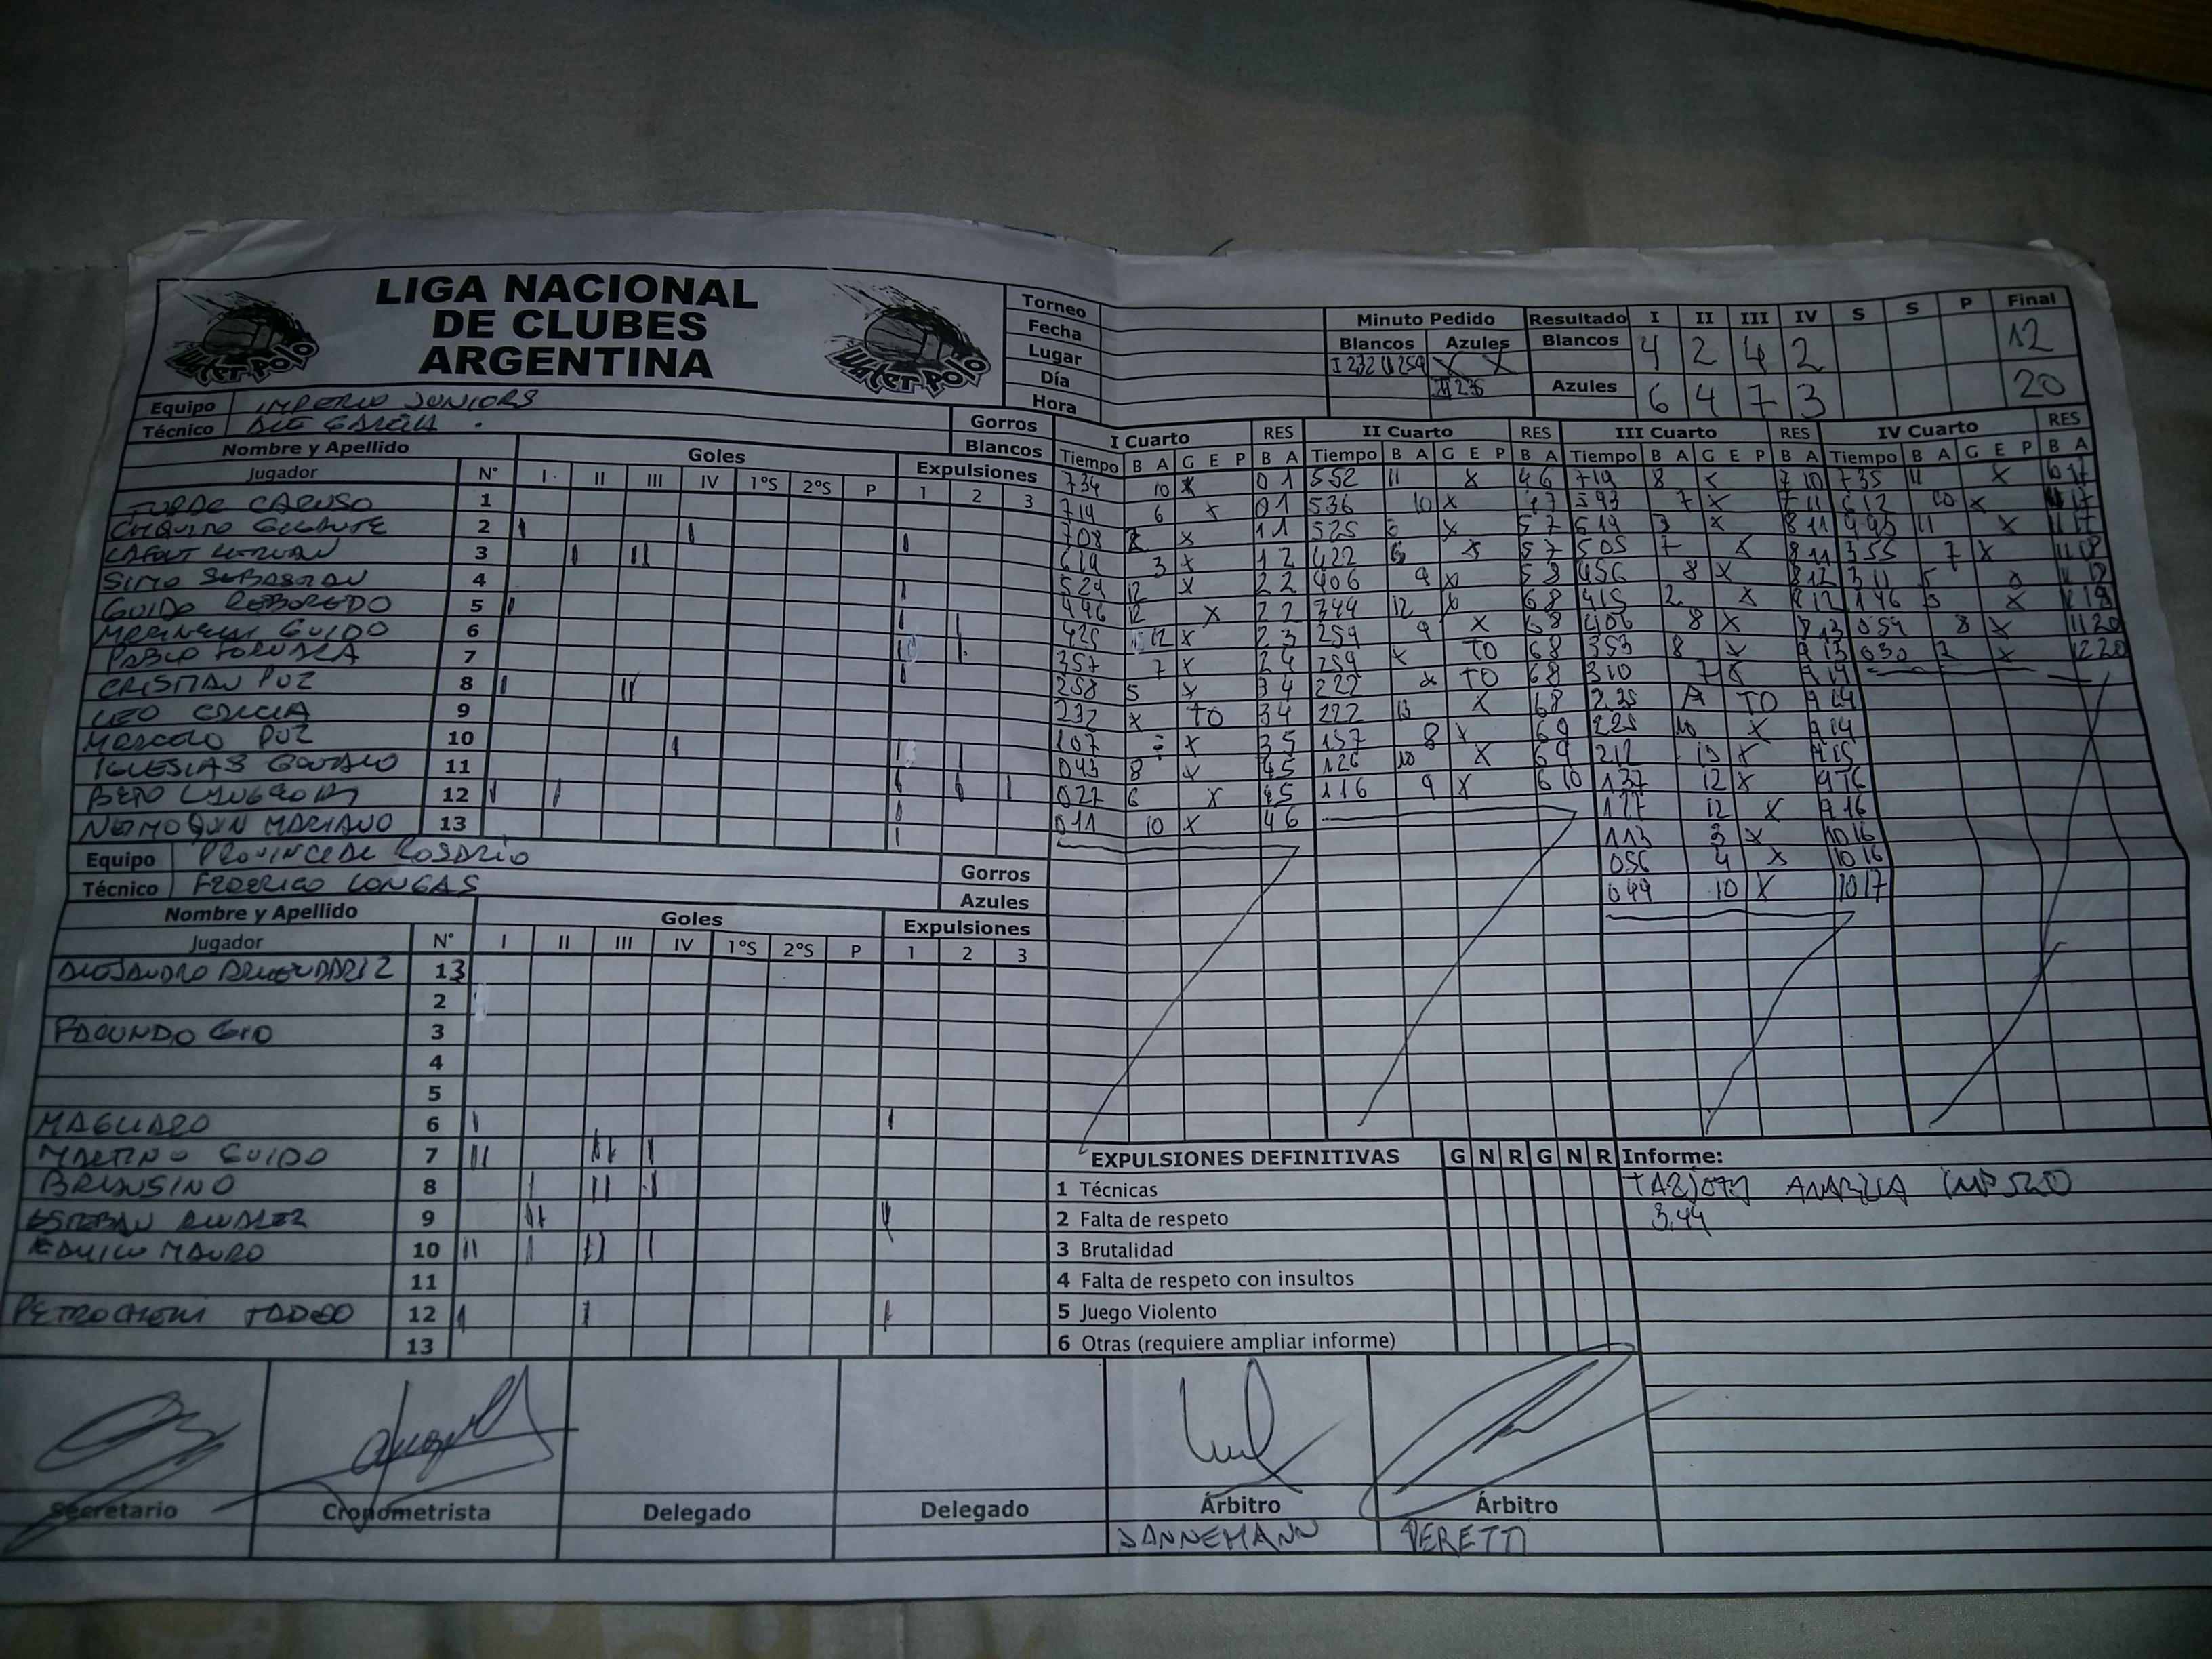 LIGA NACIONAL
DE CLUBES
ARGENTINA
Water Polo
Water Polo
Torneo
Fecha
Lugar
Día
Hora
Minuto Pedido
Blancos Azules
I 232 259 X X
235
Resultado I II III IV S S P Final
Blancos 4 2 4 2 12
Azules 6 4 7 3 20
Equipo IMPERIO JUNIORS
Técnico GARCIA
Gorros
Blancos
Nombre y Apellido
Jugador N°
Goles
I II III IV 1°S 2°S P
Expulsiones
1 2 3
CARUSO 1
CHIQUITO 2
3
SIMO SEBASTIAN 4
GUIDO REBOREDO 5
GUIDO 6
PABLO 7
CRISTIAN PUZ 8
LEO GARCIA 9
MARCELO PUZ 10
IGLESIAS GONZALO 11
BETO 12
MARIANO 13
I Cuarto RES II Cuarto RES III Cuarto RES IV Cuarto RES
Tiempo B A G E P B A Tiempo B A G E P B A Tiempo B A G E P B A Tiempo B A G E P B A
734 10 X 0 1 552 11 X 4 6 719 8 X 7 10 735 11 X 10 17
714 6 X 0 1 536 10 X 4 7 543 7 X 7 11 612 10 X
708 X 1 1 525 X 5 7 619 3 X 8 11 11 X
614 3 X 1 2 422 6 X 5 7 505 7 X 8 11 355 7 X 11 18
524 12 X 2 2 406 9 X 5 8 456 8 X 8 12 311 5
446 12 X 2 2 344 12 X 6 8 415 2 X 8 12 146 X
425 12 X 2 3 259 9 X 6 8 406 8 X 8 13 054 8 X 11 20
357 7 X 2 4 259 X TO 6 8 353 8 X 9 13 030 2 X 12 20
258 5 X 3 4 222 X TO 6 8 310 7 X 9 14
232 X TO 3 4 222 13 X 6 8 235 TO 9 14
107 X 3 5 157 8 X 6 9 225 10 X 9 14
043 8 X 4 5 126 10 X 6 9 212 13 X 9 15
027 6 X 4 5 116 9 X 6 10 137 12 X 9 16
011 10 X 4 6 127 12 X 9 16
113 3 X 10 16
056 4 X 10 16
044 10 X 10 17
Equipo PROVINCIAL ROSARIO
Técnico FEDERICO LONGAS
Gorros
Azules
Nombre y Apellido
Jugador N°
Goles
I II III IV 1°S 2°S P
Expulsiones
1 2 3
ALEJANDRO 13
2
FACUNDO GIO 3
4
5
MAGLIARO 6
MARTINO GUIDO 7
BRIANSINO 8
ESTEBAN ALVAREZ 9
MAURO 10
11
TADEO 12
13
EXPULSIONES DEFINITIVAS G N R G N R
1 Técnicas
2 Falta de respeto
3 Brutalidad
4 Falta de respeto con insultos
5 Juego Violento
6 Otras (requiere ampliar informe)
Informe:
3,44
Secretario
Cronometrista
Delegado
Delegado
Árbitro
Árbitro
DANNEMANN
PERETTI